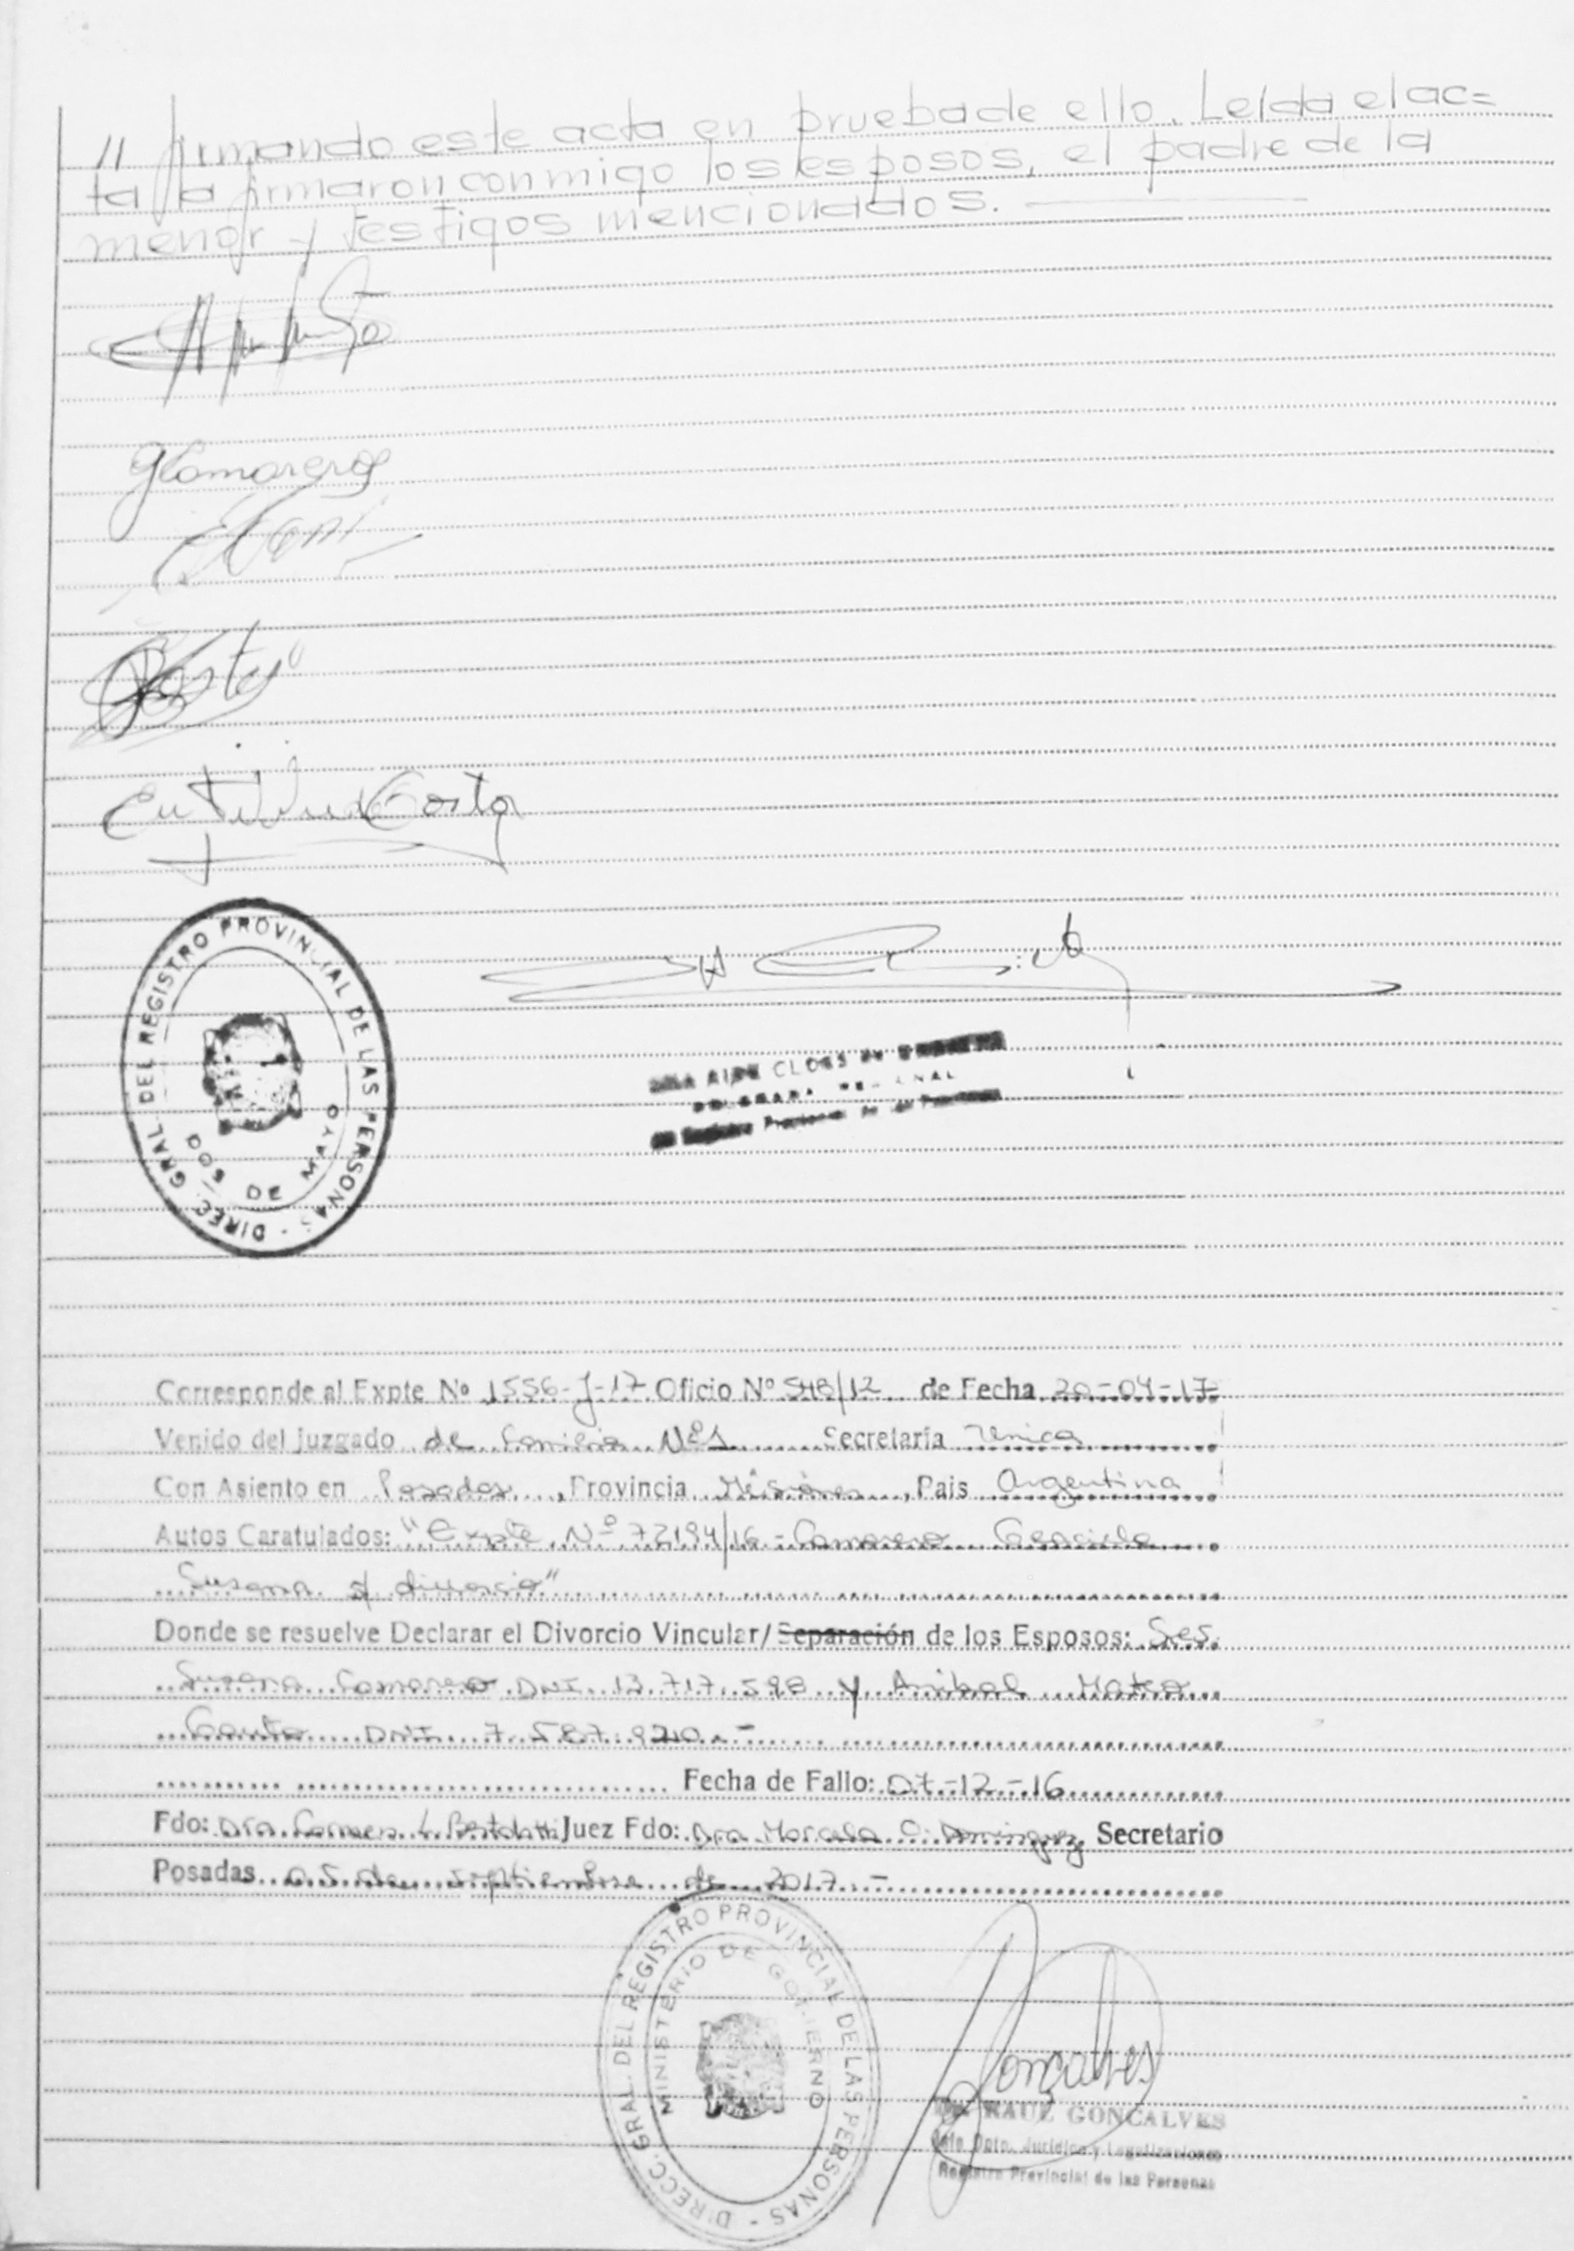 // firmando este acta en prueba de ello. Leída el ac=
ta la firmaron conmigo los esposos, el padre de la
menor y testigos mencionados.
GCamarero
Eutilina Costa
DIREC. GRAL. DEL REGISTRO PROVINCIAL DE LAS PERSONAS
DE MAYO
Registro Provincial de las Personas
Corresponde al Expte Nº 1556-J-17 Oficio Nº 548/12 de Fecha 20-04-17
Venido del Juzgado de Familia Nº1 Secretaría Unica
Con Asiento en Posadas, Provincia Misiones, País Argentina
Autos Caratulados: "Expte Nº 72194/16 - Camarero Graciela
Susana s/ divorcio"
Donde se resuelve Declarar el Divorcio Vincular/Separación de los Esposos: Sres.
Susana Camarero DNI 13.717.598 y Anibal Mateo
DNI 7.587.920.-
Fecha de Fallo: 07-12-16
Fdo: Dra. Carmen L. Bertolotti Juez Fdo: Dra Marcela O. Dominguez Secretario
Posadas 05 de septiembre de 2017.-
DIRECC. GRAL. DEL REGISTRO PROVINCIAL DE LAS PERSONAS
MINISTERIO DE GOBIERNO
Goncalves
RAUL GONCALVES
Jefe Dpto. Jurídico y Legalizaciones
Registro Provincial de las Personas